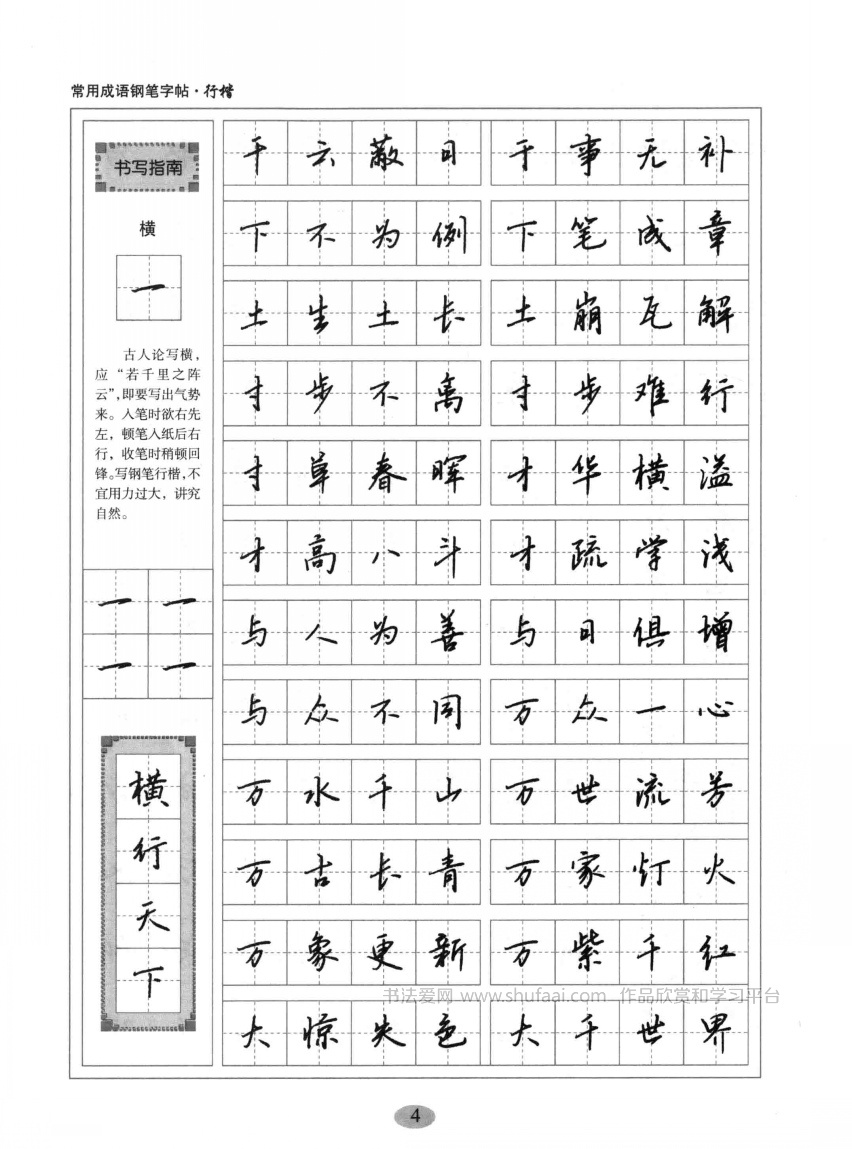 常用成语钢笔字帖·行楷
书写指南
横
一
古人论写横，
应“若千里之阵
云”，即要写出气势
来。入笔时欲右先
左，顿笔入纸后右
行，收笔时稍顿回
锋。写钢笔行楷，不
宜用力过大，讲究
自然。
一 一
一 一
横
行
天
下
干云蔽日 于事无补
下不为例 下笔成章
土生土长 土崩瓦解
寸步不离 寸步难行
寸草春晖 才华横溢
才高八斗 才疏学浅
与人为善 与日俱增
与众不同 万众一心
万水千山 万世流芳
万古长青 万家灯火
万象更新 万紫千红
大惊失色 大千世界
书法爱网 www.shufaai.com 作品欣赏和学习平台
4